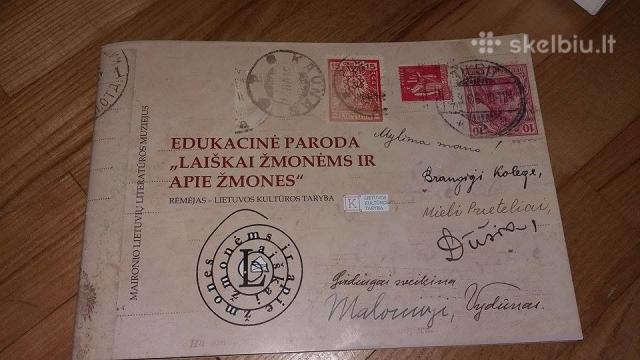 skelbiu.lt
KAUNAS
15
10
10
MAIRONIO LIETUVIŲ LITERATŪROS MUZIEJUS
EDUKACINĖ PARODA
„LAIŠKAI ŽMONĖMS IR
APIE ŽMONES“
RĖMĖJAS – LIETUVOS KULTŪROS TARYBA
LIETUVOS
KULTŪROS
TARYBA
Mylima mano!
Brangieji Kolege,
Mieli Prieteliai,
Dūšia!
Širdingai sveikina
Malonieji, Vydūnas.
Laiškai žmonėms ir apie žmones
L